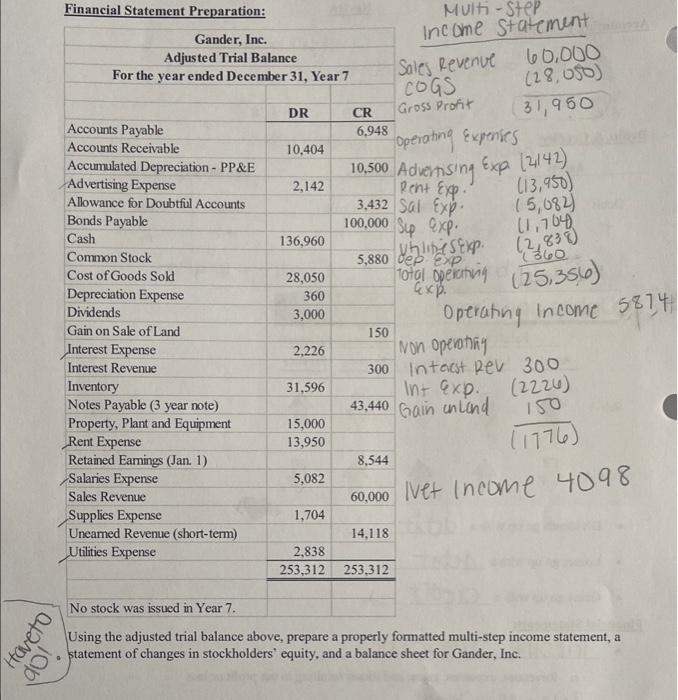 Financial Statement Preparation:
Multi-Step
Income Statement
Gander, Inc.
Adjusted Trial Balance
For the year ended December 31, Year 7
DR CR
Accounts Payable 6,948
Accounts Receivable 10,404
Accumulated Depreciation - PP&E 10,500
Advertising Expense 2,142
Allowance for Doubtful Accounts 3,432
Bonds Payable 100,000
Cash 136,960
Common Stock 5,880
Cost of Goods Sold 28,050
Depreciation Expense 360
Dividends 3,000
Gain on Sale of Land 150
Interest Expense 2,226
Interest Revenue 300
Inventory 31,596
Notes Payable (3 year note) 43,440
Property, Plant and Equipment 15,000
Rent Expense 13,950
Retained Earnings (Jan. 1) 8,544
Salaries Expense 5,082
Sales Revenue 60,000
Supplies Expense 1,704
Unearned Revenue (short-term) 14,118
Utilities Expense 2,838
253,312 253,312
Sales Revenue 60,000
COGS (28,050)
Gross Profit 31,950
Operating Expenses
Advertising Exp (2142)
Rent Exp. (13,950)
Sal Exp. (5,082)
Sup Exp. (1,704)
Utilities Exp. (2,838)
Dep. Exp. (360
Total Operating Exp. (25,356)
Operating Income 5874
Non Operating
Interest Rev 300
Int Exp. (2226)
Gain on Land 150
(1776)
Net Income 4098
No stock was issued in Year 7.
Using the adjusted trial balance above, prepare a properly formatted multi-step income statement, a
statement of changes in stockholders' equity, and a balance sheet for Gander, Inc.